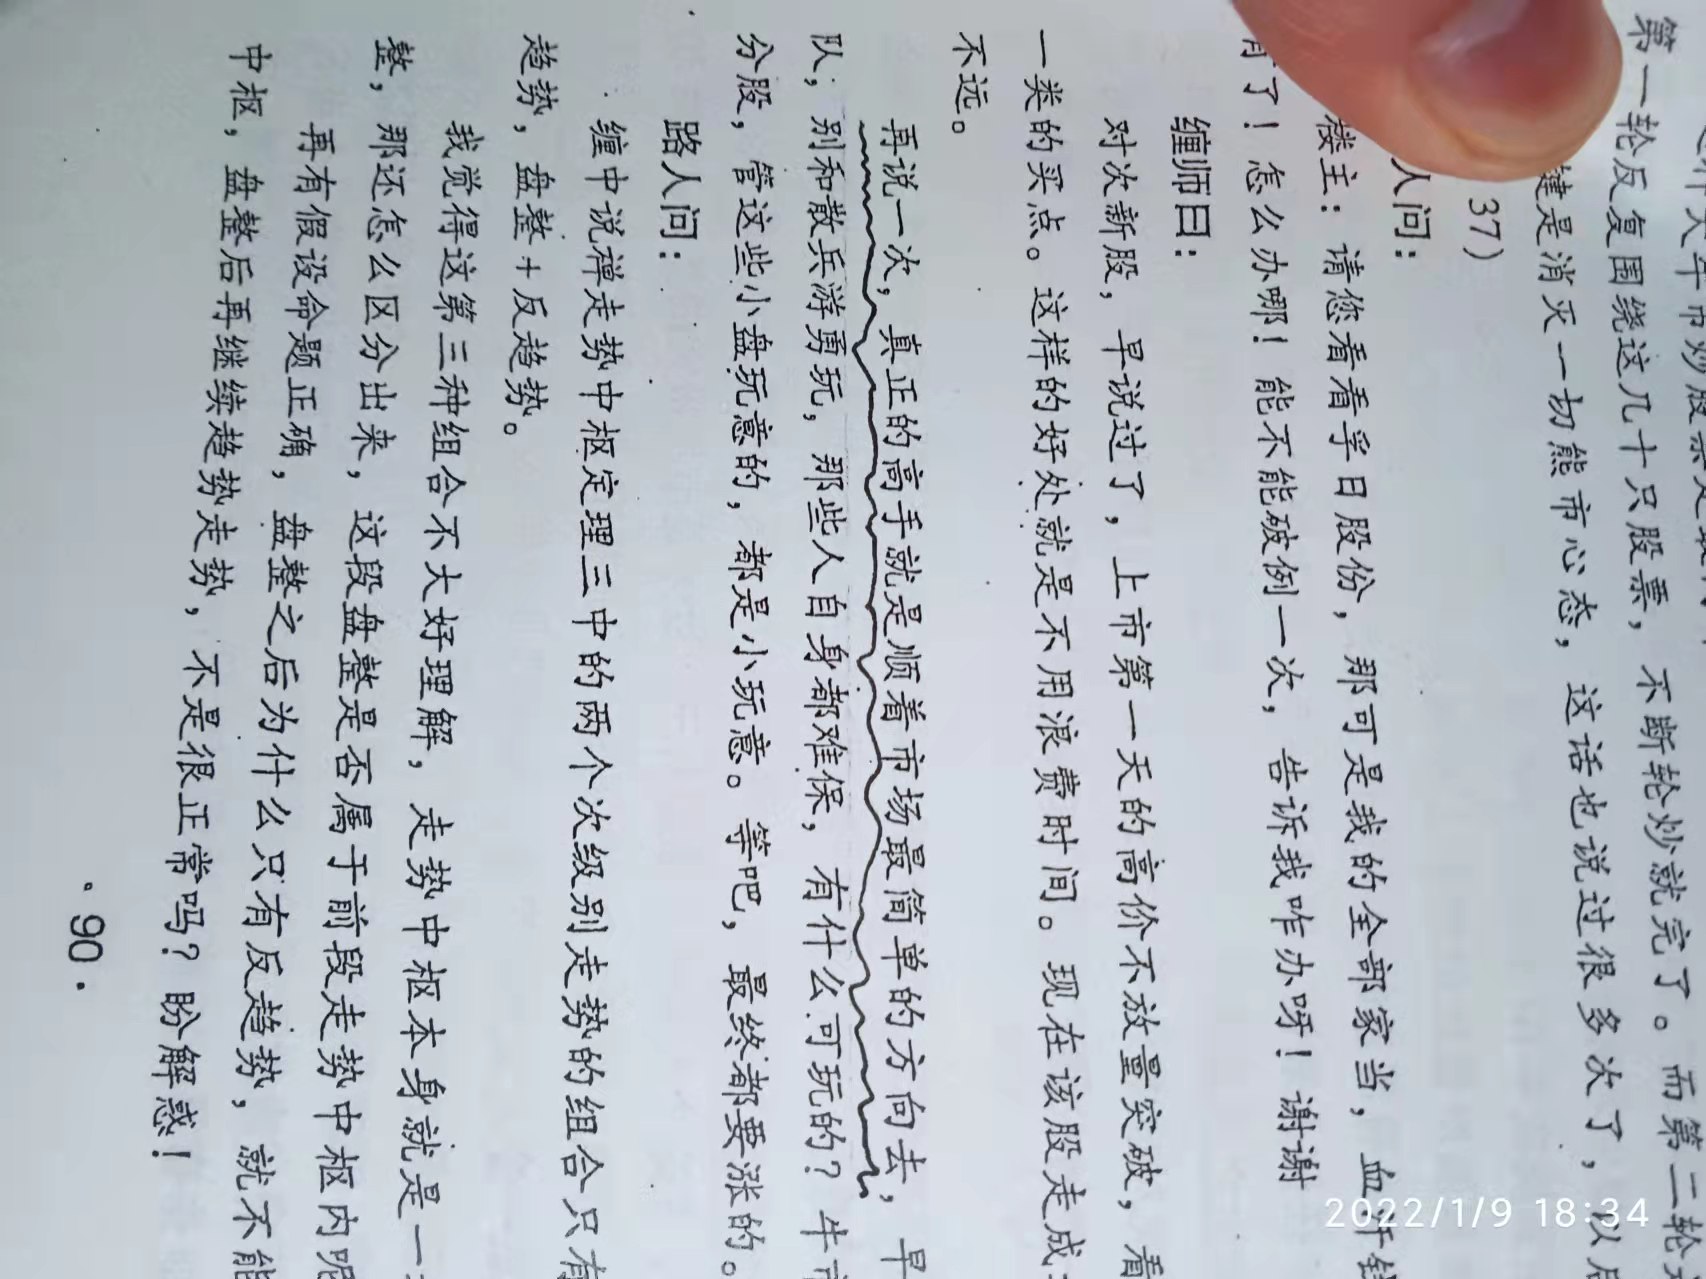 第一轮反复围绕这几十只股票，不断轮炒就完了。而第二轮
键是消灭一切熊市心态，这话也说过很多次了，以后
37）
人问：
楼主：请您看看孚日股份，那可是我的全部家当，血
了！怎么办哪！能不能破例一次，告诉我咋办呀！谢谢
缠师曰：
对次新股，早说过了，上市第一天的高价不放量突破，看
一类的买点。这样的好处就是不用浪费时间。现在该股走成
不远。
再说一次，真正的高手就是顺着市场最简单的方向去，早
队，别和散兵游勇玩，那些人自身都难保，有什么可玩的？牛市
分股，管这些小盘玩意的，都是小玩意。等吧，最终都要涨的。
路人问：
缠中说禅走势中枢定理三中的两个次级别走势的组合只有
趋势，盘整+反趋势。
我觉得这第三种组合不大好理解，走势中枢本身就是一
整，那还怎么区分出来，这段盘整是否属于前段走势中枢内呢
再有假设命题正确，盘整之后为什么只有反趋势，就不能
中枢，盘整后再继续趋势走势，不是很正常吗？盼解惑！
· 90 ·
2022/1/9 18:34